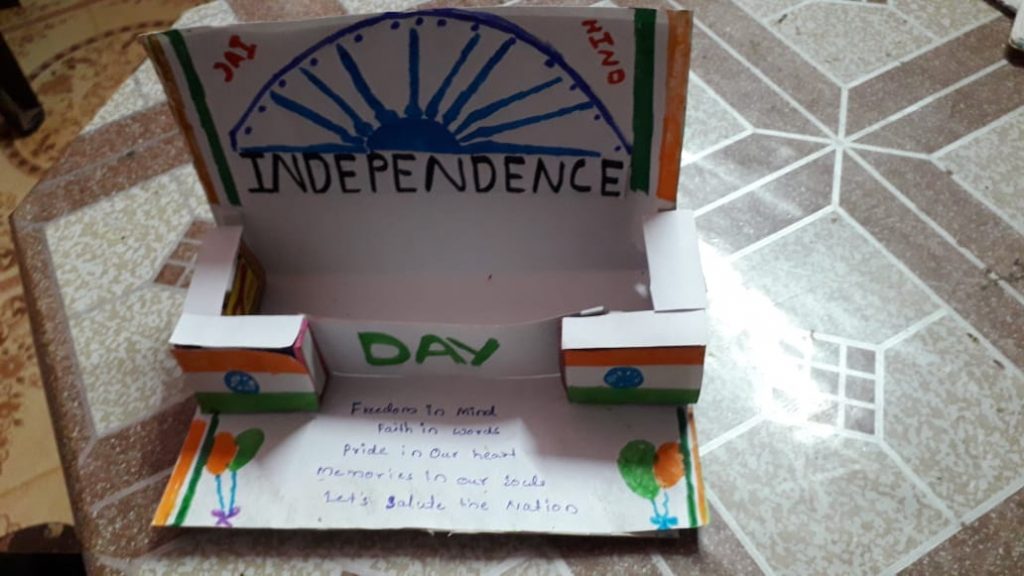 JAI HIND
INDEPENDENCE
DAY
Freedom in Mind
Faith in words
Pride in Our heart
Memories in our Souls
Let's Salute the Nation